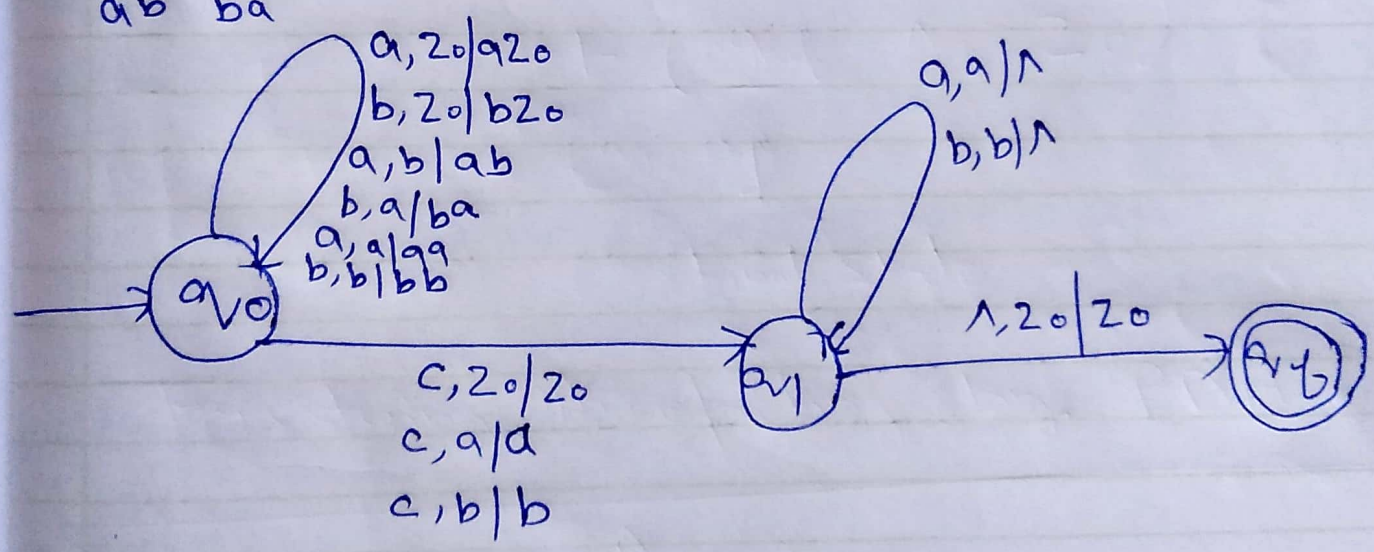 ab ba
a,z0|az0
b,z0|bz0
a,b|ab
b,a|ba
a,a|aa
b,b|bb
q0
c,z0|z0
c,a|a
c,b|b
a,a|^
b,b|^
q1
^,z0|z0
qf